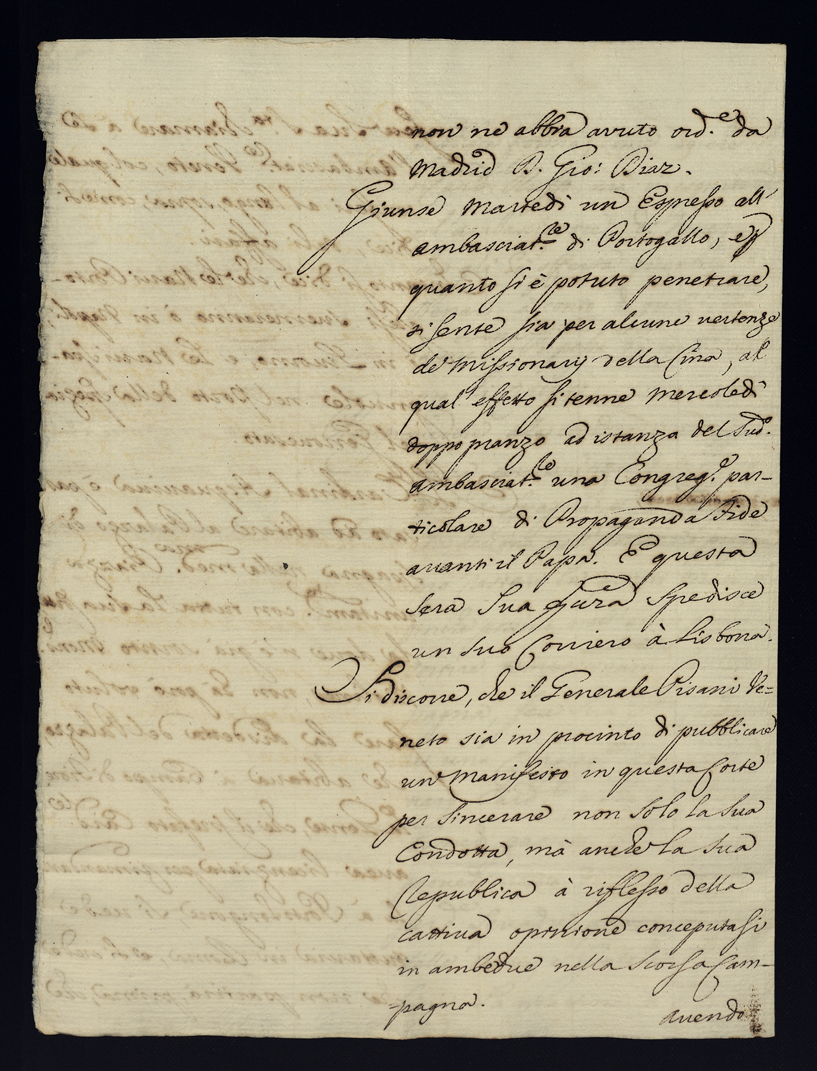 non ne abbia avuto ord.e da
Madrid D. Gio: Diaz.
Giunse Martedì un Espresso all'
ambasciat.re di Portogallo, e p
quanto si è potuto penetrare,
si sente sia per alcune vertenze
de' Missionarij della Cina, al
qual' effetto si tenne Mercoledì
doppo pranzo ad istanza del Sud.o
ambasciat.re una Congreg.e par-
ticolare di Propaganda Fide
avanti il Papa. E questa
sera Sua spedisce
un suo Corriero à Lisbona.
Si discorre, che il Generale Pisani Ve=
neto sia in procinto di pubblicare
un Manifesto in questa Corte
per sincerare non solo la sua
Condotta, mà anche la sua
Republica à riflesso della
cattiva opinione conceputasi
in ambedue nella scorsa Cam-
-pagna.
avendo